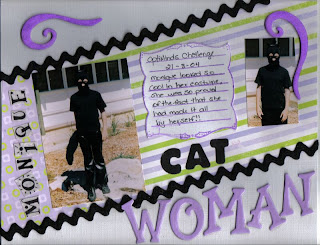 MONIQUE
Challenge
21-3-04
monique looked so
cool in her costume.
she was so proud
of the fact that she
had made it all
by herself!!
CAT
WOMAN